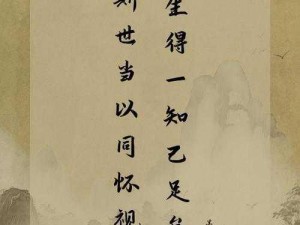 生得一知己足矣
斯世当以同怀视